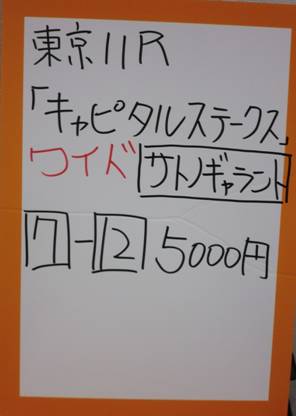 東京11R
「キャピタルステークス」
ワイド サトノギャラント
7-2 5000円